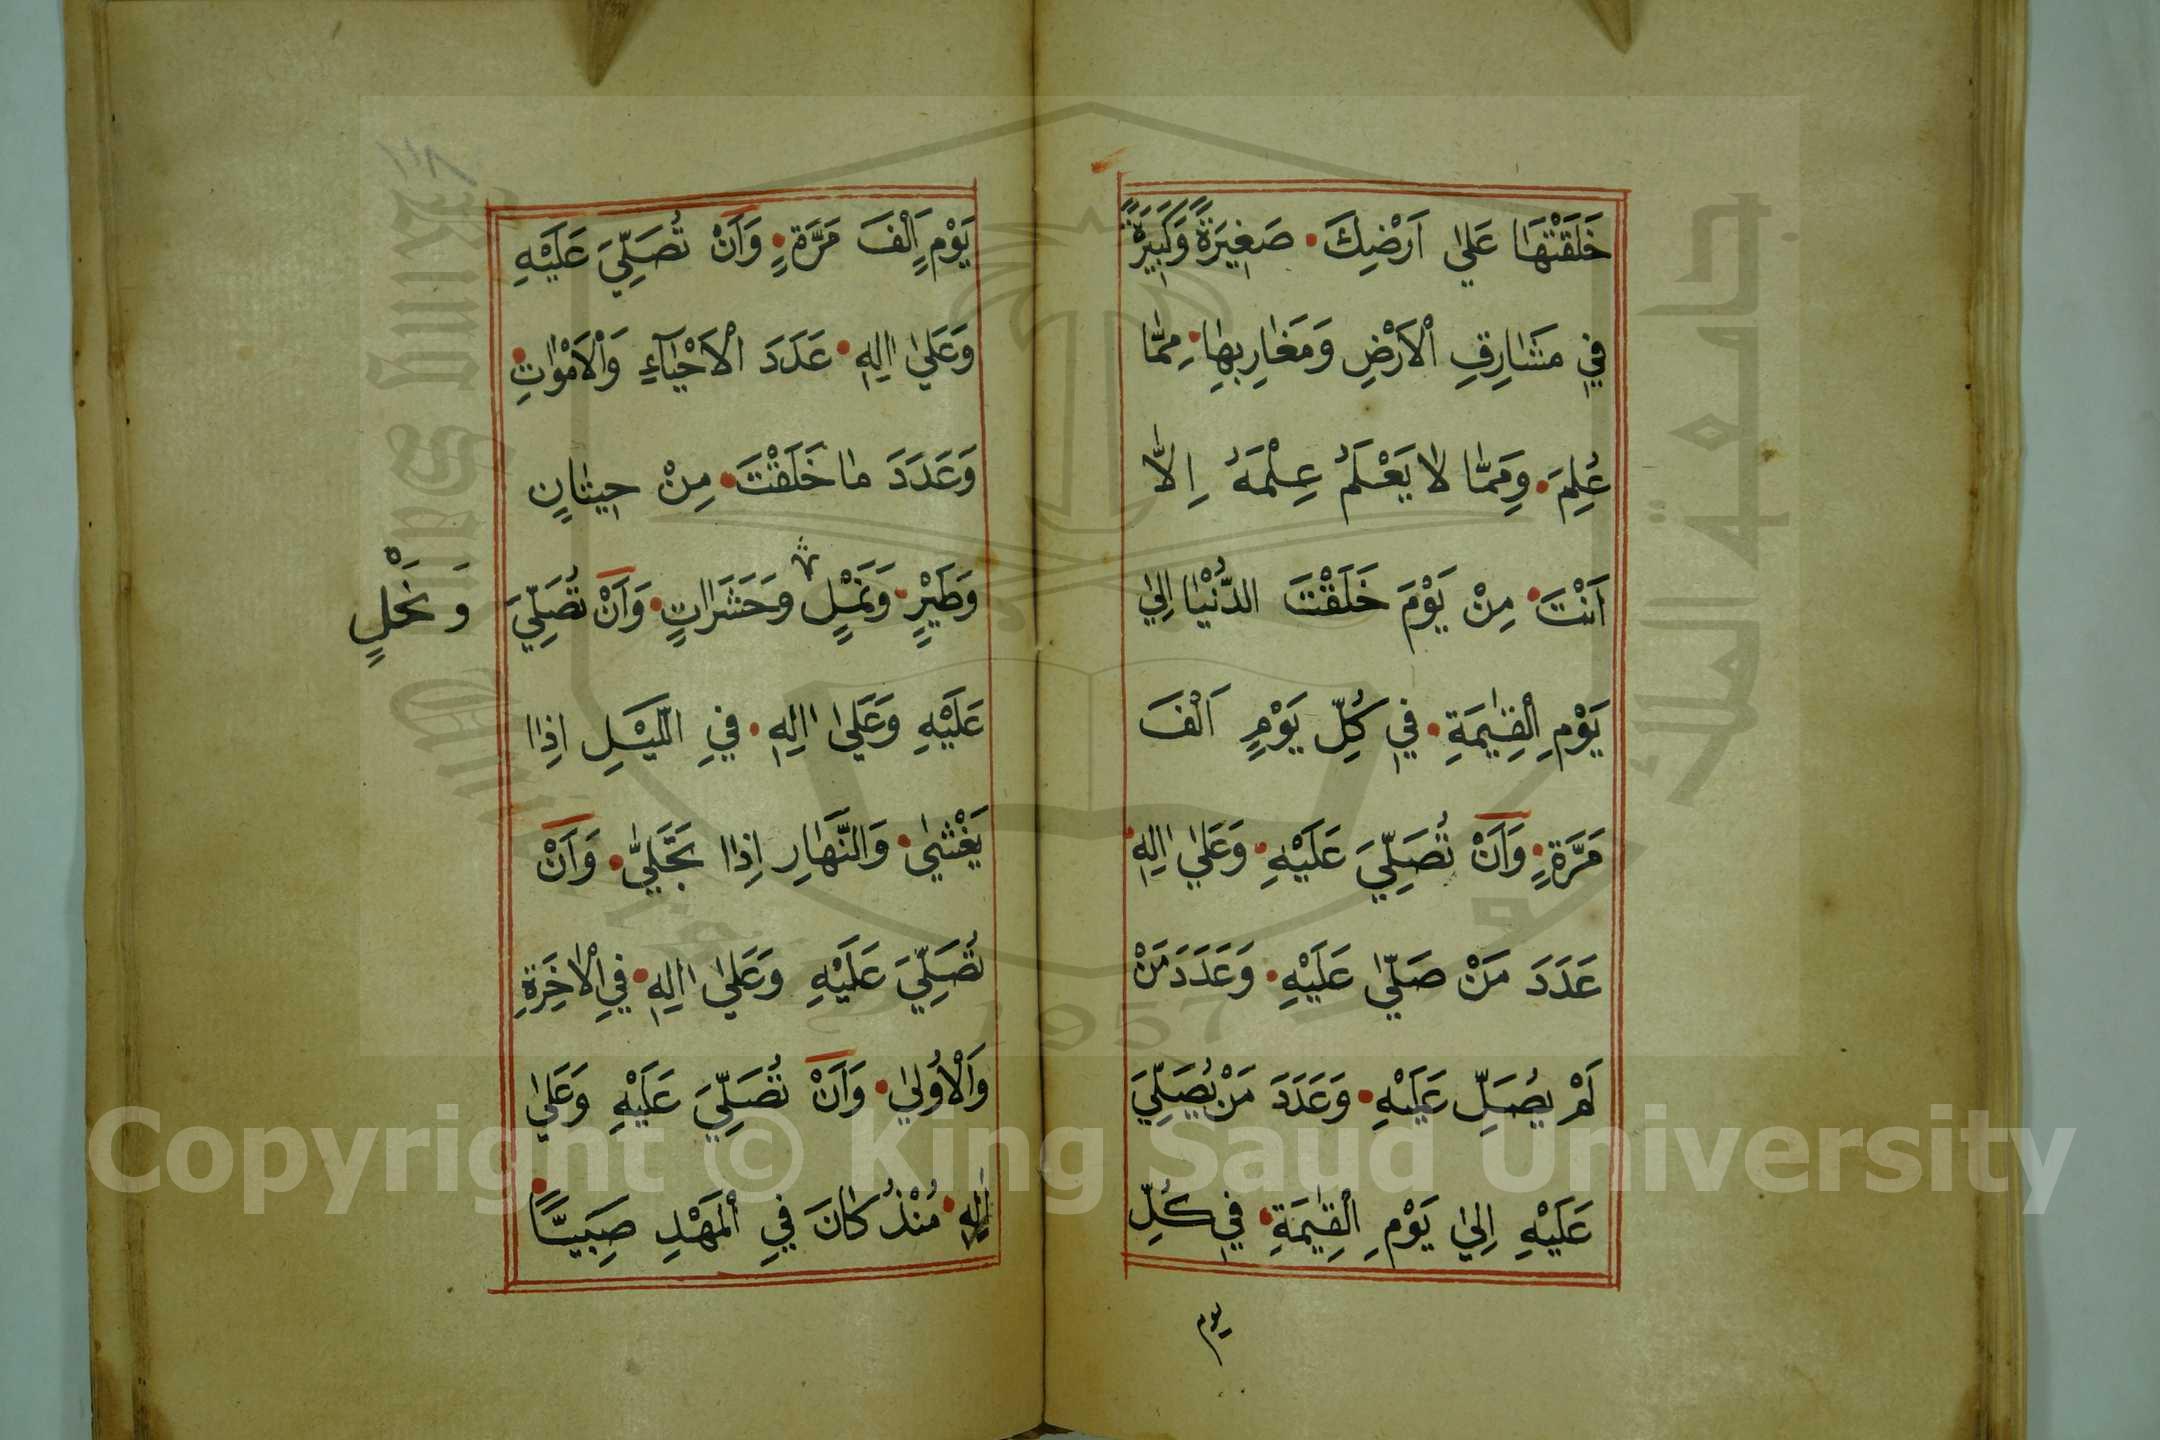 خَلَقْتَهَا عَلٰي اَرْضِكَ صَغِيرَةً وَكَبِيرَةً
فِي مَشَارِقِ الْاَرْضِ وَمَغَارِبِهَا مِمَّا
عُلِمَ وَمِمَّا لَا يَعْلَمُ عِلْمَهُ اِلَّا
اَنْتَ مِنْ يَوْمَ خَلَقْتَ الدُّنْيَا اِلٰي
يَوْمِ الْقِيٰمَةِ فِي كُلِّ يَوْمٍ اَلْفَ
مَرَّةٍ وَاَنْ تُصَلِّيَ عَلَيْهِ وَعَلٰي اٰلِهِ
عَدَدَ مَنْ صَلّٰي عَلَيْهِ وَعَدَدَ مَنْ
لَمْ يُصَلِّ عَلَيْهِ وَعَدَدَ مَنْ يُصَلِّيَ
عَلَيْهِ اِلٰي يَوْمِ الْقِيٰمَةِ فِي كُلِّ
يوم
يَوْمٍ اَلْفَ مَرَّةٍ وَاَنْ تُصَلِّيَ عَلَيْهِ
وَعَلٰي اٰلِهِ عَدَدَ الْاَحْيَآءِ وَالْاَمْوٰاتِ
وَعَدَدَ مَا خَلَقْتَ مِنْ حِيتَانٍ
وَطَيْرٍ وَنَمْلٍ وَحَشَرَاتٍ وَاَنْ تُصَلِّيَ
وَ نَحْلٍ
عَلَيْهِ وَعَلٰي اٰلِهِ فِي اللَّيْلِ اِذَا
يَغْشٰي وَالنَّهَارِ اِذَا تَجَلّٰي وَاَنْ
تُصَلِّيَ عَلَيْهِ وَعَلٰي اٰلِهِ فِي الْاٰخِرَةِ
وَالْاُولٰي وَاَنْ تُصَلِّيَ عَلَيْهِ وَعَلٰي
اٰلِهِ مُنْذُ كَانَ فِي الْمَهْدِ صَبِيًّا
Copyright © King Saud University
جامعة الملك سعود
King Saud University
1957